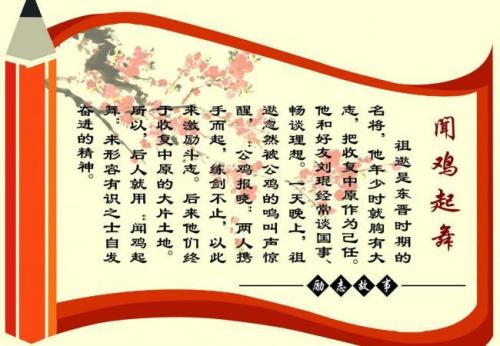 闻鸡起舞
祖逖是东晋时期的
名将，他年少时就胸有大
志，把收复中原作为己任。
他和好友刘琨经常谈国事、
畅谈理想。一天晚上，祖
逖忽然被公鸡的鸣叫声惊
醒，“公鸡报晓”两人携
手而起，练剑不止，以此
来激励斗志。后来他们终
于收复中原的大片土地。
所以，后人就用“闻鸡起
舞”来形容有识之士自发
奋进的精神。
励志故事